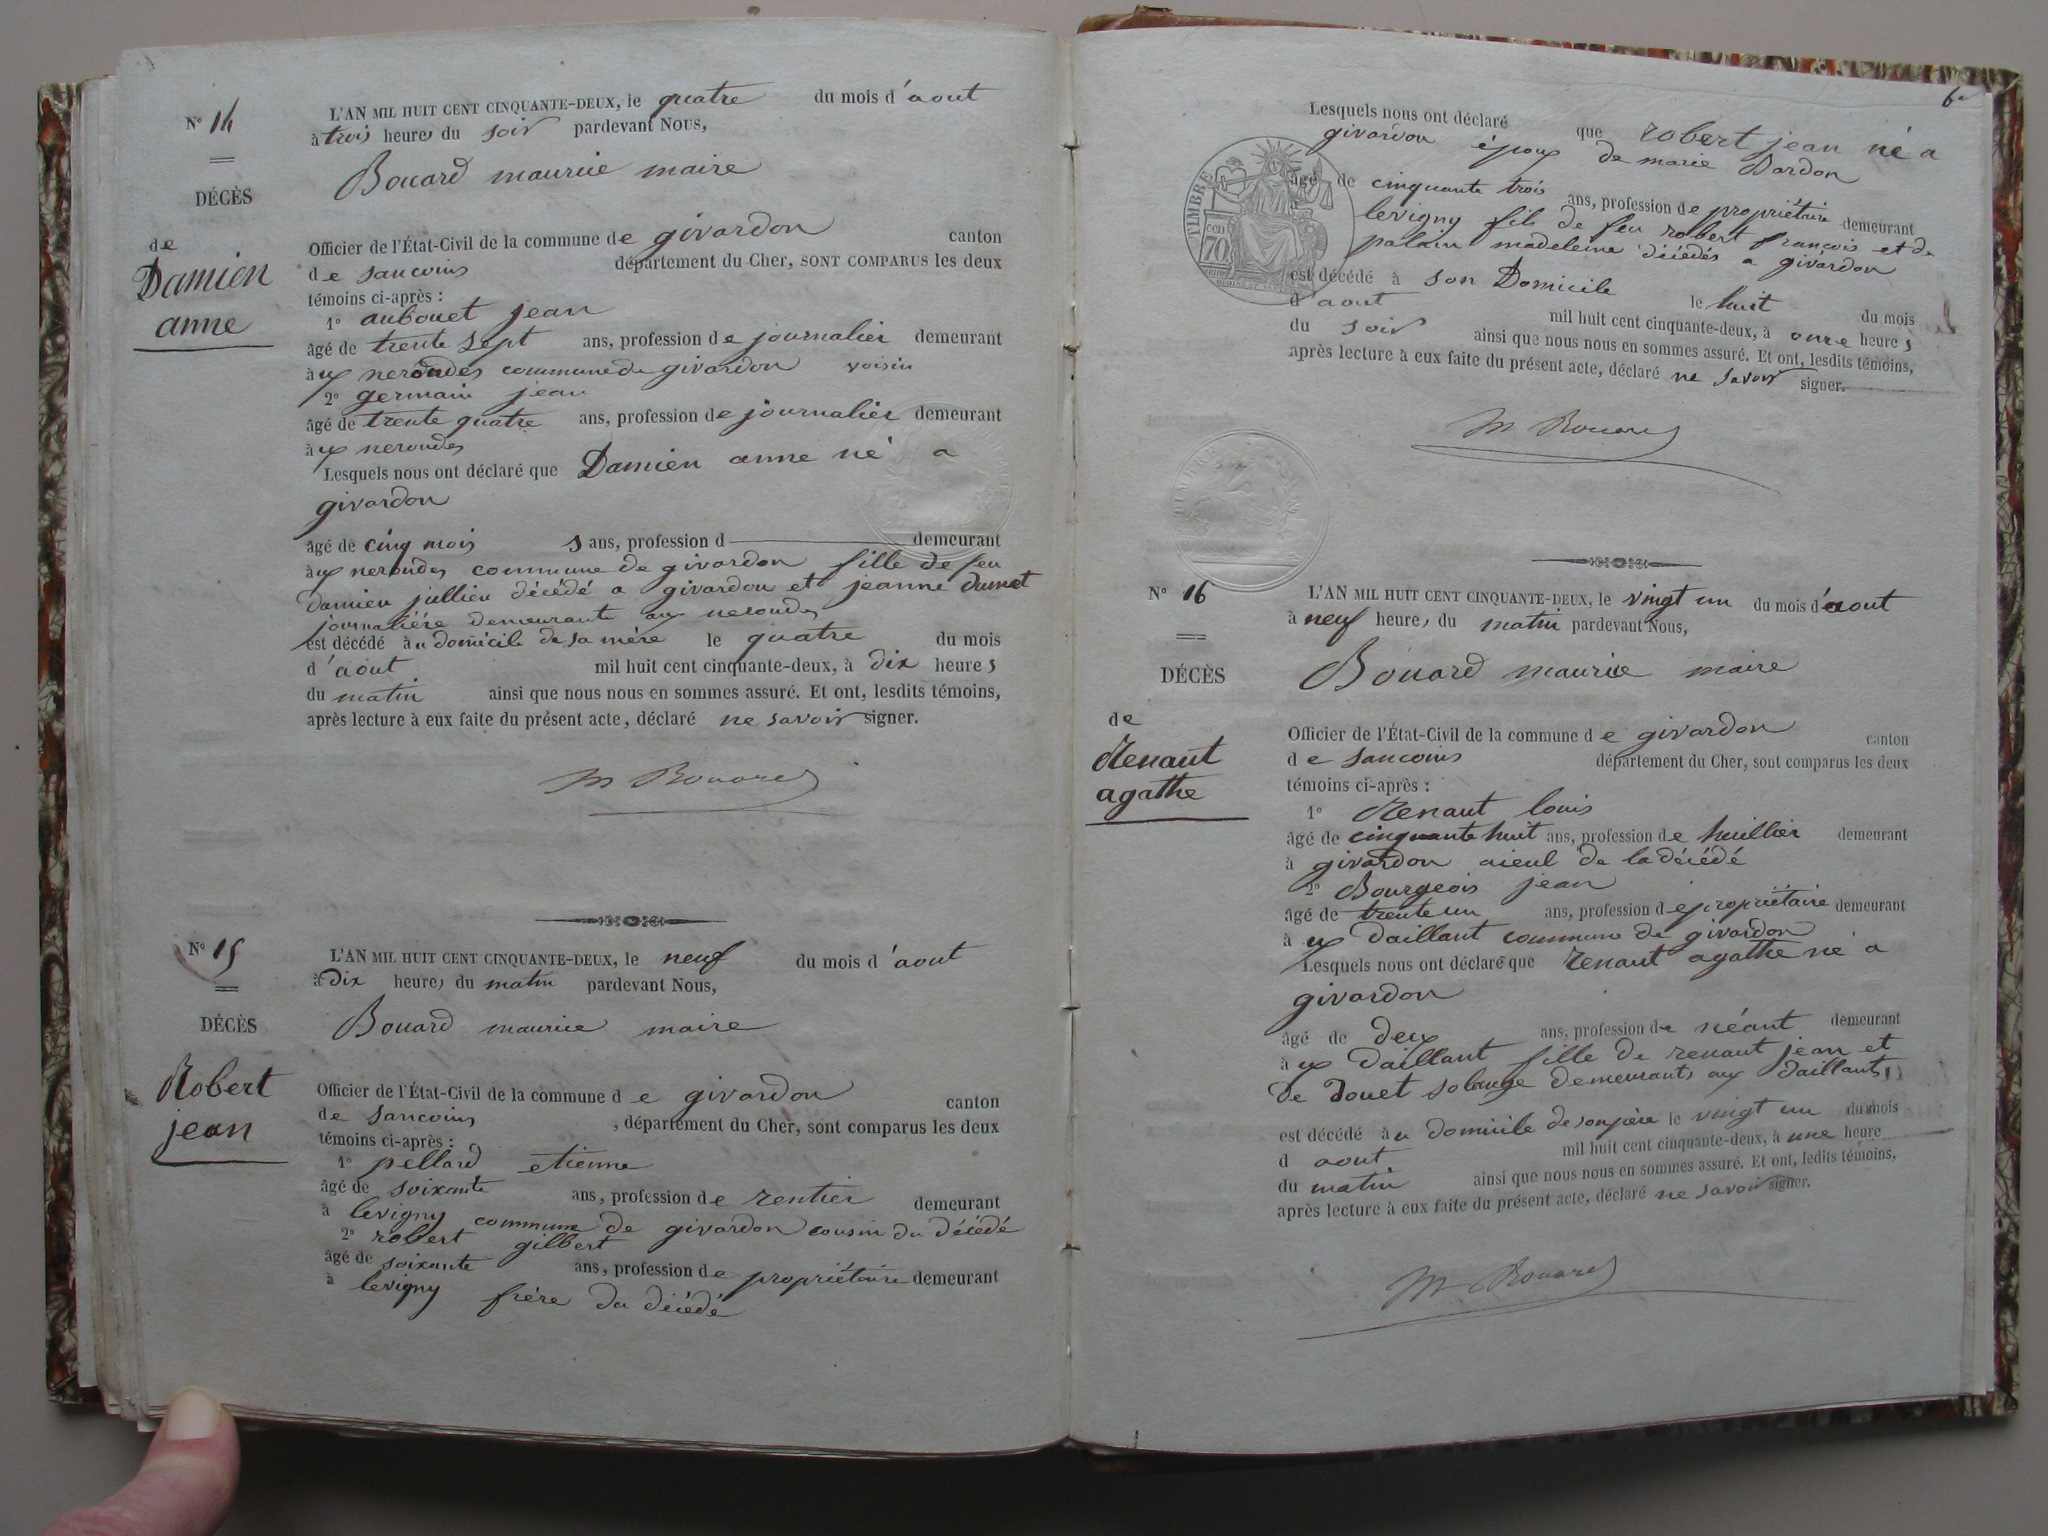 N° 14
DÉCÈS
de
Damien
anne
L'AN MIL HUIT CENT CINQUANTE-DEUX, le quatre du mois d'aout
à trois heures du soir pardevant NOUS,
Bouard maurice maire
Officier de l'État-Civil de la commune de givardon canton
de sancoins département du Cher, SONT COMPARUS les deux
témoins ci-après :
1° aubouet jean
âgé de trente sept ans, profession de journalier demeurant
aux nerondes commune de givardon voisin
2° germain jean
âgé de trente quatre ans, profession de journalier demeurant
aux nerondes
Lesquels nous ont déclaré que Damien anne né a
givardon
âgé de cinq mois s ans, profession d demeurant
aux nerondes commune de givardon fille de feu
damien jullien décédé a givardon et jeanne dumet
journalière demeurante aux nerondes
est décédé au domicile de sa mére le quatre du mois
d'aout mil huit cent cinquante-deux, à dix heures
du matin ainsi que nous nous en sommes assuré. Et ont, lesdits témoins,
après lecture à eux faite du présent acte, déclaré ne savoir signer.
M Bouard
N° 15
DÉCÈS
Robert
jean
L'AN MIL HUIT CENT CINQUANTE-DEUX, le neuf du mois d'aout
à dix heures du matin pardevant Nous,
Bouard maurice maire
Officier de l'État-Civil de la commune de givardon canton
de sancoins , département du Cher, sont comparus les deux
témoins ci-après :
1° pellard etienne
âgé de soixante ans, profession de rentier demeurant
à levigny commune de givardon cousin du décédé
2° robert gilbert
âgé de soixante ans, profession de propriétaire demeurant
à levigny frére du décédé
6e
Lesquels nous ont déclaré que robert jean né a
givardon époux de marie Dardon
âgé de cinquante trois ans, profession de propriétaire demeurant
à levigny fils de feu robert françois et de
palain madeleine décédés a givardon
est décédé à son Domicile le huit du mois
d'aout mil huit cent cinquante-deux, à onze heures
du soir ainsi que nous nous en sommes assuré. Et ont, lesdits témoins,
après lecture à eux faite du présent acte, déclaré ne savoir signer.
M Bouard
TIMBRE
70
N° 16
DÉCÈS
de
Renaut
agathe
L'AN MIL HUIT CENT CINQUANTE-DEUX, le vingt un du mois d'aout
à neuf heures du matin pardevant Nous,
Bouard maurice maire
Officier de l'État-Civil de la commune de givardon canton
de sancoins département du Cher, sont comparus les deux
témoins ci-après :
1° Renaut louis
âgé de cinquante huit ans, profession de huillier demeurant
à givardon aieul de la décédé
2° Bourgeois jean
âgé de trente un ans, profession de propriétaire demeurant
aux daillant commune de givardon
Lesquels nous ont déclaré que renaut agathe né a
givardon
âgé de deux ans, profession de néant demeurant
aux daillant fille de renaut jean et
de douet solange demeurants aux daillants
est décédé au domicile de son père le vingt un du mois
d aout mil huit cent cinquante-deux, à une heure
du matin ainsi que nous nous en sommes assuré. Et ont, ledits témoins,
après lecture à eux faite du présent acte, déclaré ne savoir signer.
M Bouard